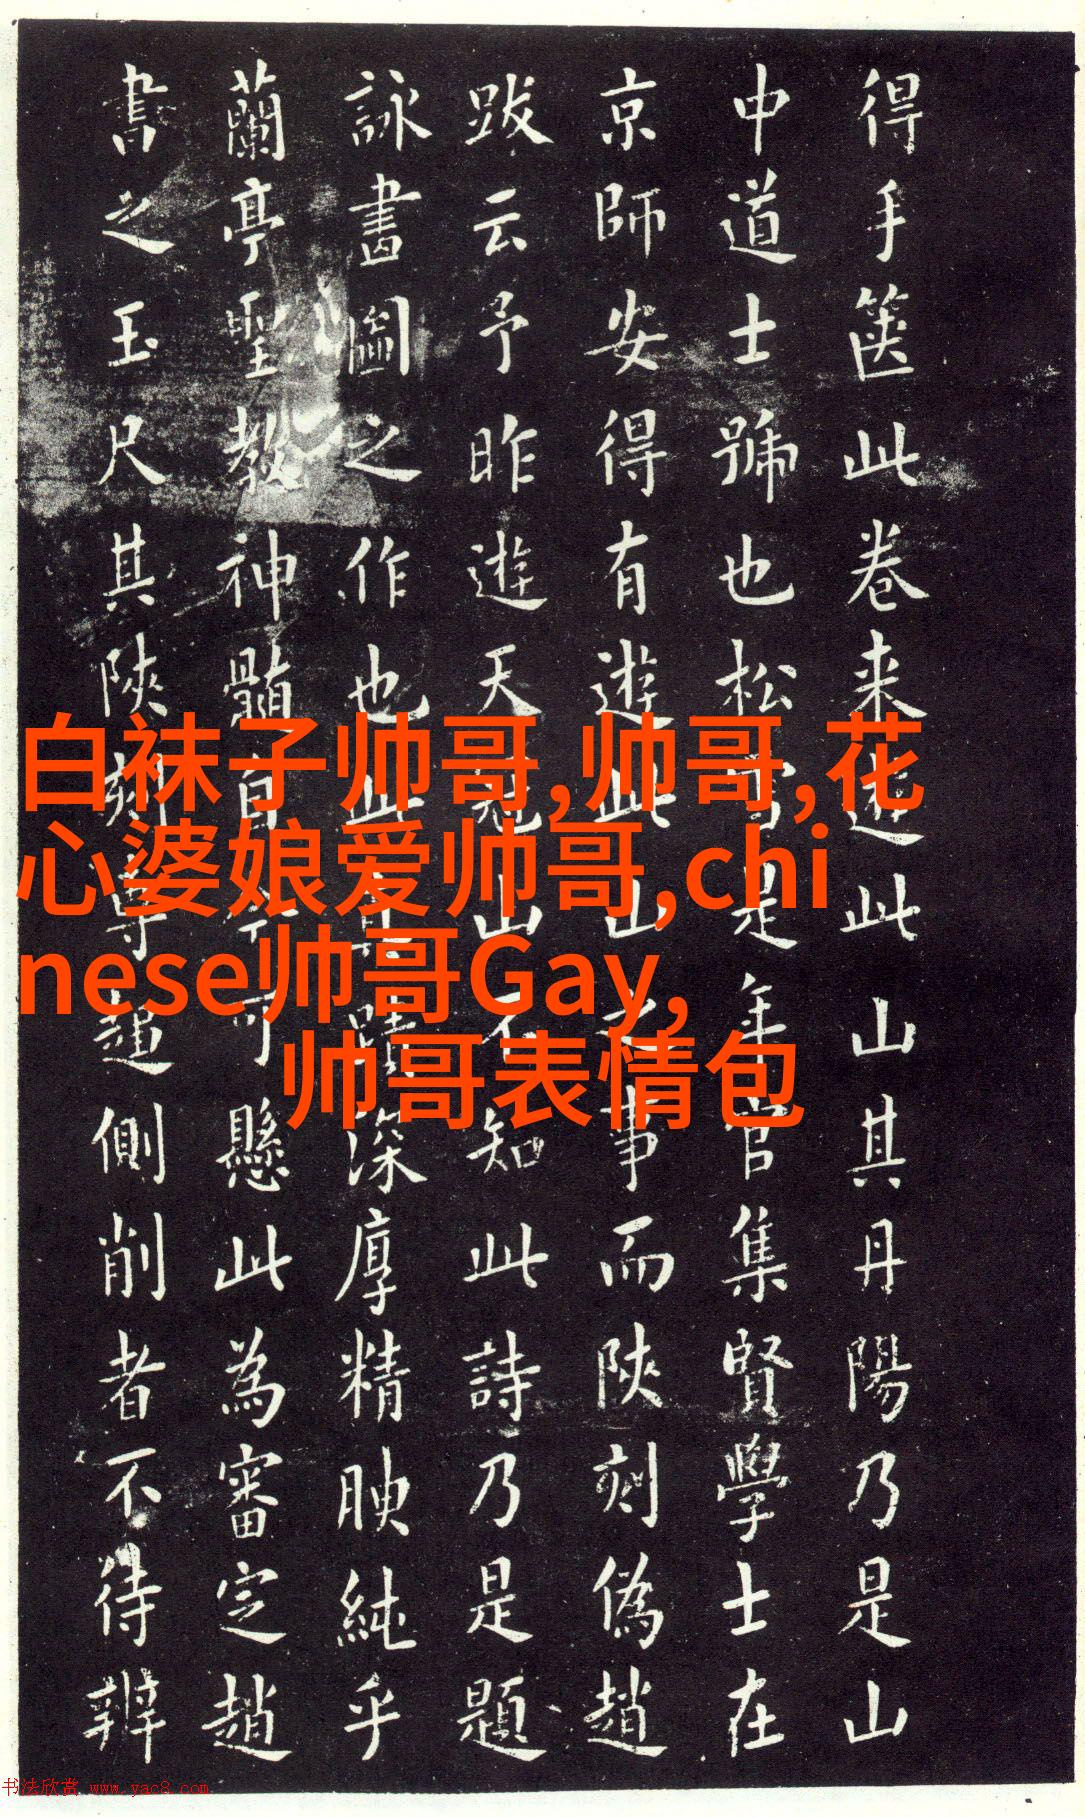 得手篋此卷来遊此山其丹陽乃是山
中道士號也松雪是年官集賢學士在
京師安得有遊此山之事而陝刻偽趙
跋云予昨遊天冠山不知此詩乃是題
詠畫圖之作也此真蹟深厚精腴純乎
蘭亭聖教神髓自今可懸此為審定趙
書之玉尺其陝刻專趨側削者不待辨
白袜子帅哥,帅哥,花
心婆娘爱帅哥,chi
nese帅哥Gay,
帅哥表情包
书法欣赏 www.yac8.com